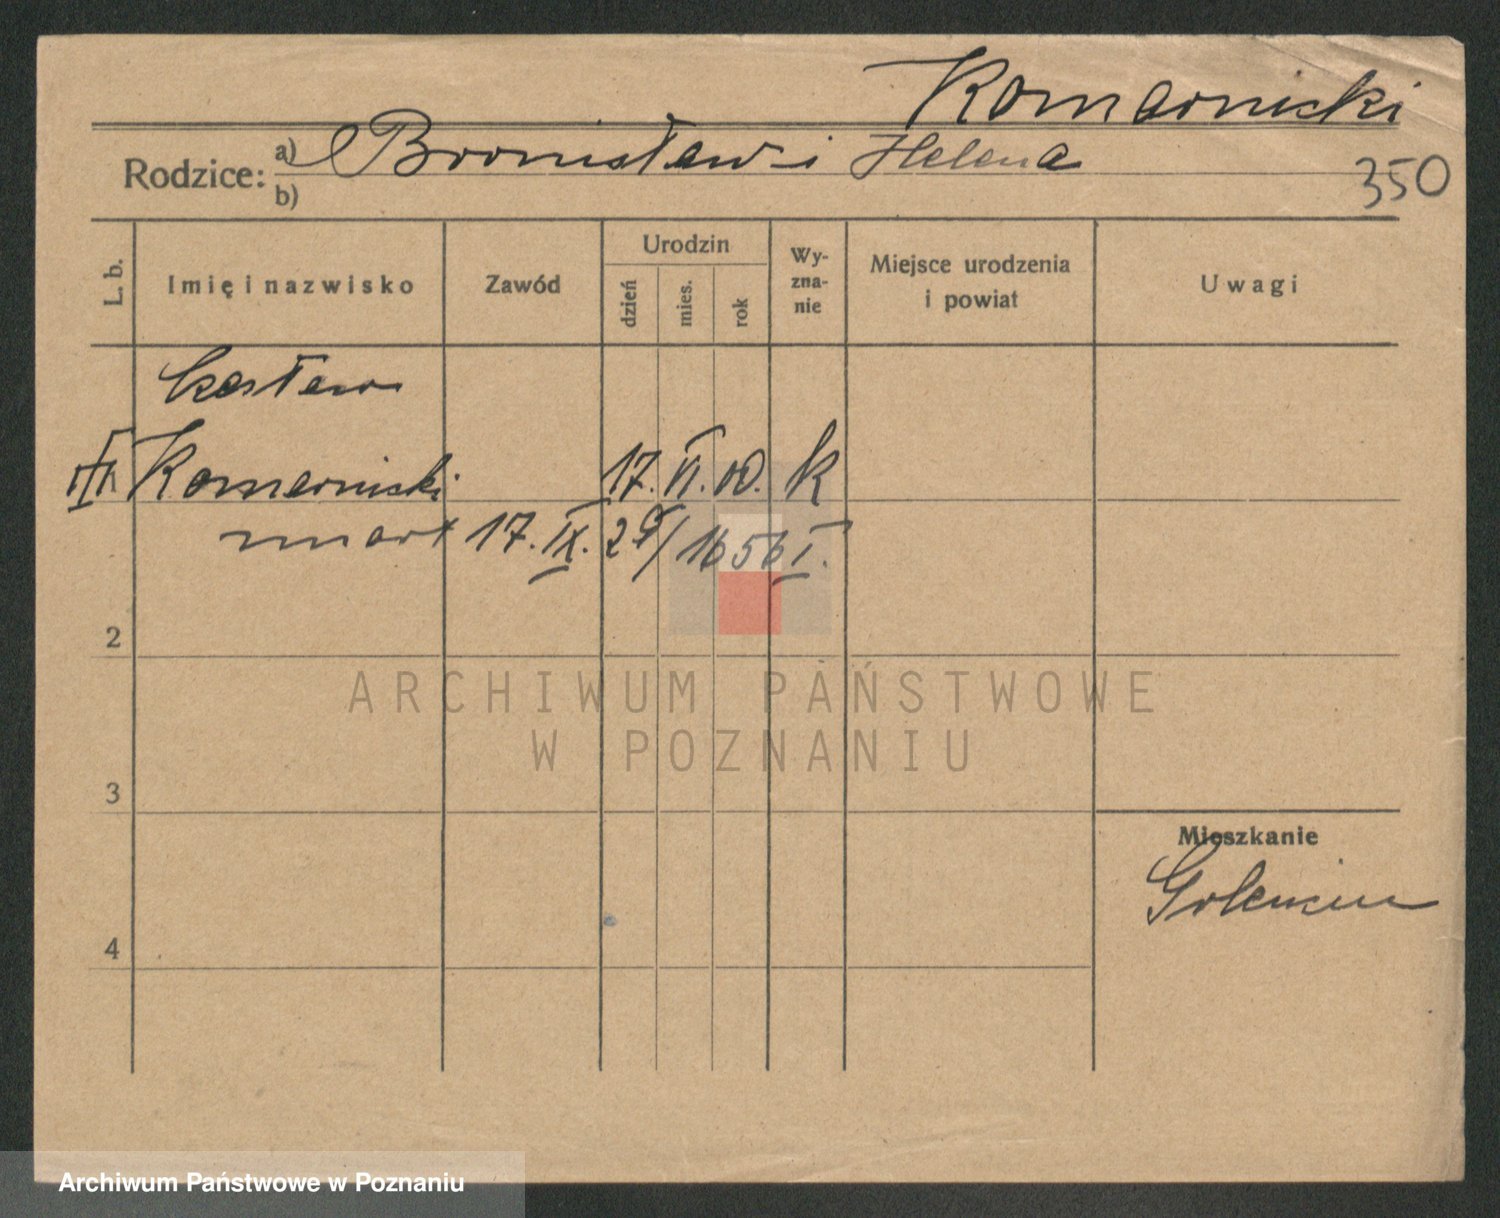 Komarnicki
Rodzice: a) Bronisław i Helena
b)
350
L. b.
Imię i nazwisko
Zawód
Urodzin
dzień
mies.
rok
Wy-
zna-
nie
Miejsce urodzenia
i powiat
Uwagi
Czesław
Komarnicki 17. VI. 00. k
zmarł 17. IX. 29/ 1656 I.
2
3
4
Mieszkanie
ARCHIWUM PAŃSTWOWE
W POZNANIU
Archiwum Państwowe w Poznaniu